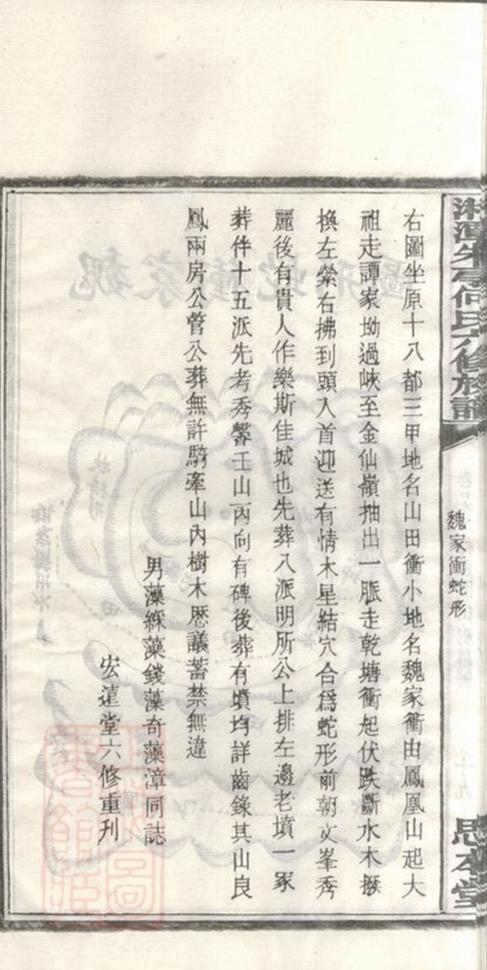 湘潭朱亭何氏六修族譜
魏家衝蛇形
思本堂
右圖坐原十八都三甲地名山田衝小地名魏家衝由鳳凰山起大
祖走譚家坳過峽至金仙嶺抽出一脈走乾塘衝起伏跌斷水木
換左縈右拂到頭人首迎送有情木星結穴合爲蛇形前朝文峯秀
麗後有貴人作樂斯佳城也先葬八派明所公上排左邊老墳一冢
葬伴十五派先考秀馨壬山丙向有碑後葬有墳均詳齒錄其山良
鳳兩房公管公葬無許騎牽山內樹木歷議蓄禁無違
男藻 藻錢藻奇藻漳同誌
宏蓮堂六修重刊